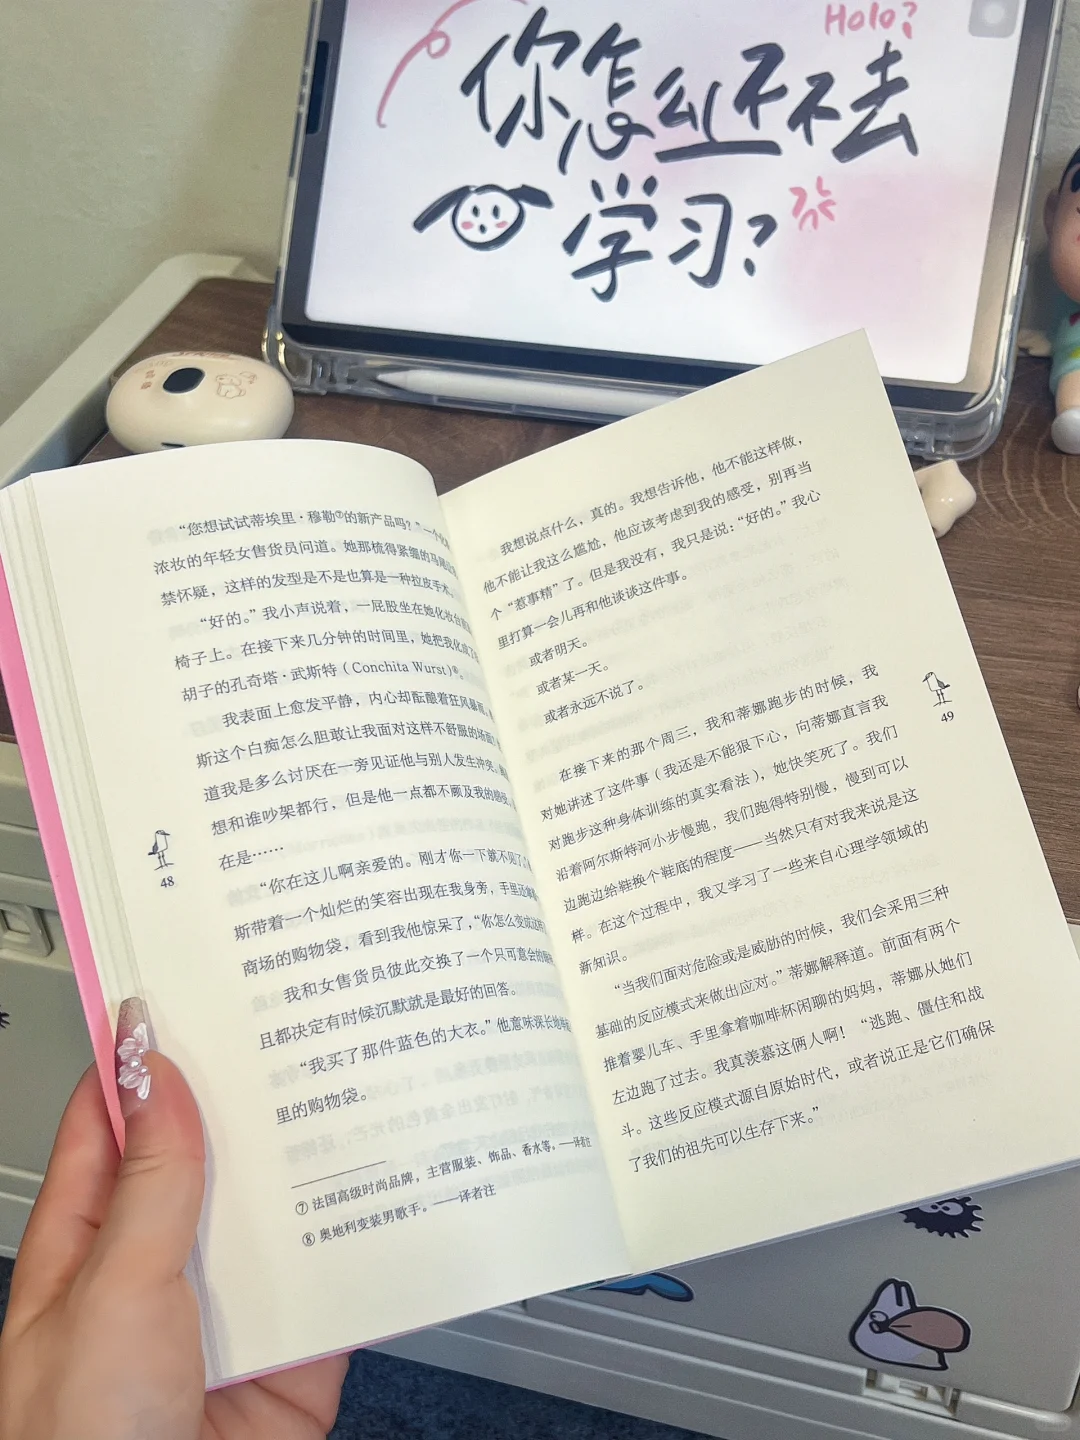 Holo?
你怎么还不去
学习?
“您想试试蒂埃里·穆勒⑦的新产品吗?”一个化
浓妆的年轻女售货员问道。她那梳得紧绷的马尾
禁怀疑，这样的发型是不是也算是一种拉皮手术。
“好的。”我小声说着，一屁股坐在她化妆台前
椅子上。在接下来几分钟的时间里，她把我化成了
胡子的孔奇塔·武斯特（Conchita Wurst)⑧。
我表面上愈发平静，内心却酝酿着狂风暴雨。
斯这个白痴怎么胆敢让我面对这样不舒服的场面?
道我是多么讨厌在一旁见证他与别人发生冲突。
想和谁吵架都行，但是他一点都不顾及我的感受。
在是……
“你在这儿啊亲爱的。刚才你一下就不见了。”
斯带着一个灿烂的笑容出现在我身旁，手里还
商场的购物袋，看到我他惊呆了，“你怎么变成这样
我和女售货员彼此交换了一个只可意会的
且都决定有时候沉默就是最好的回答。
“我买了那件蓝色的大衣。”他意味深长地
里的购物袋。
⑦ 法国高级时尚品牌，主营服装、饰品、香水等。——译者注
⑧ 奥地利变装男歌手。——译者注
48
我想说点什么，真的。我想告诉他，他不能这样做，
他不能让我这么尴尬，他应该考虑到我的感受，别再当
个“惹事精”了。但是我没有，我只是说：“好的。”我心
里打算一会儿再和他谈谈这件事。
或者明天。
或者某一天。
或者永远不说了。
在接下来的那个周三，我和蒂娜跑步的时候，我
对她讲述了这件事（我还是不能狠下心，向蒂娜直言我
对跑步这种身体训练的真实看法），她快笑死了。我们
沿着阿尔斯特河小步慢跑，我们跑得特别慢，慢到可以
边跑边给鞋换个鞋底的程度——当然只有对我来说是这
样。在这个过程中，我又学习了一些来自心理学领域的
新知识。
“当我们面对危险或是威胁的时候，我们会采用三种
基础的反应模式来做出应对。”蒂娜解释道。前面有两个
推着婴儿车、手里拿着咖啡杯闲聊的妈妈，蒂娜从她们
左边跑了过去。我真羡慕这俩人啊！“逃跑、僵住和战
斗。这些反应模式源自原始时代，或者说正是它们确保
了我们的祖先可以生存下来。”
49